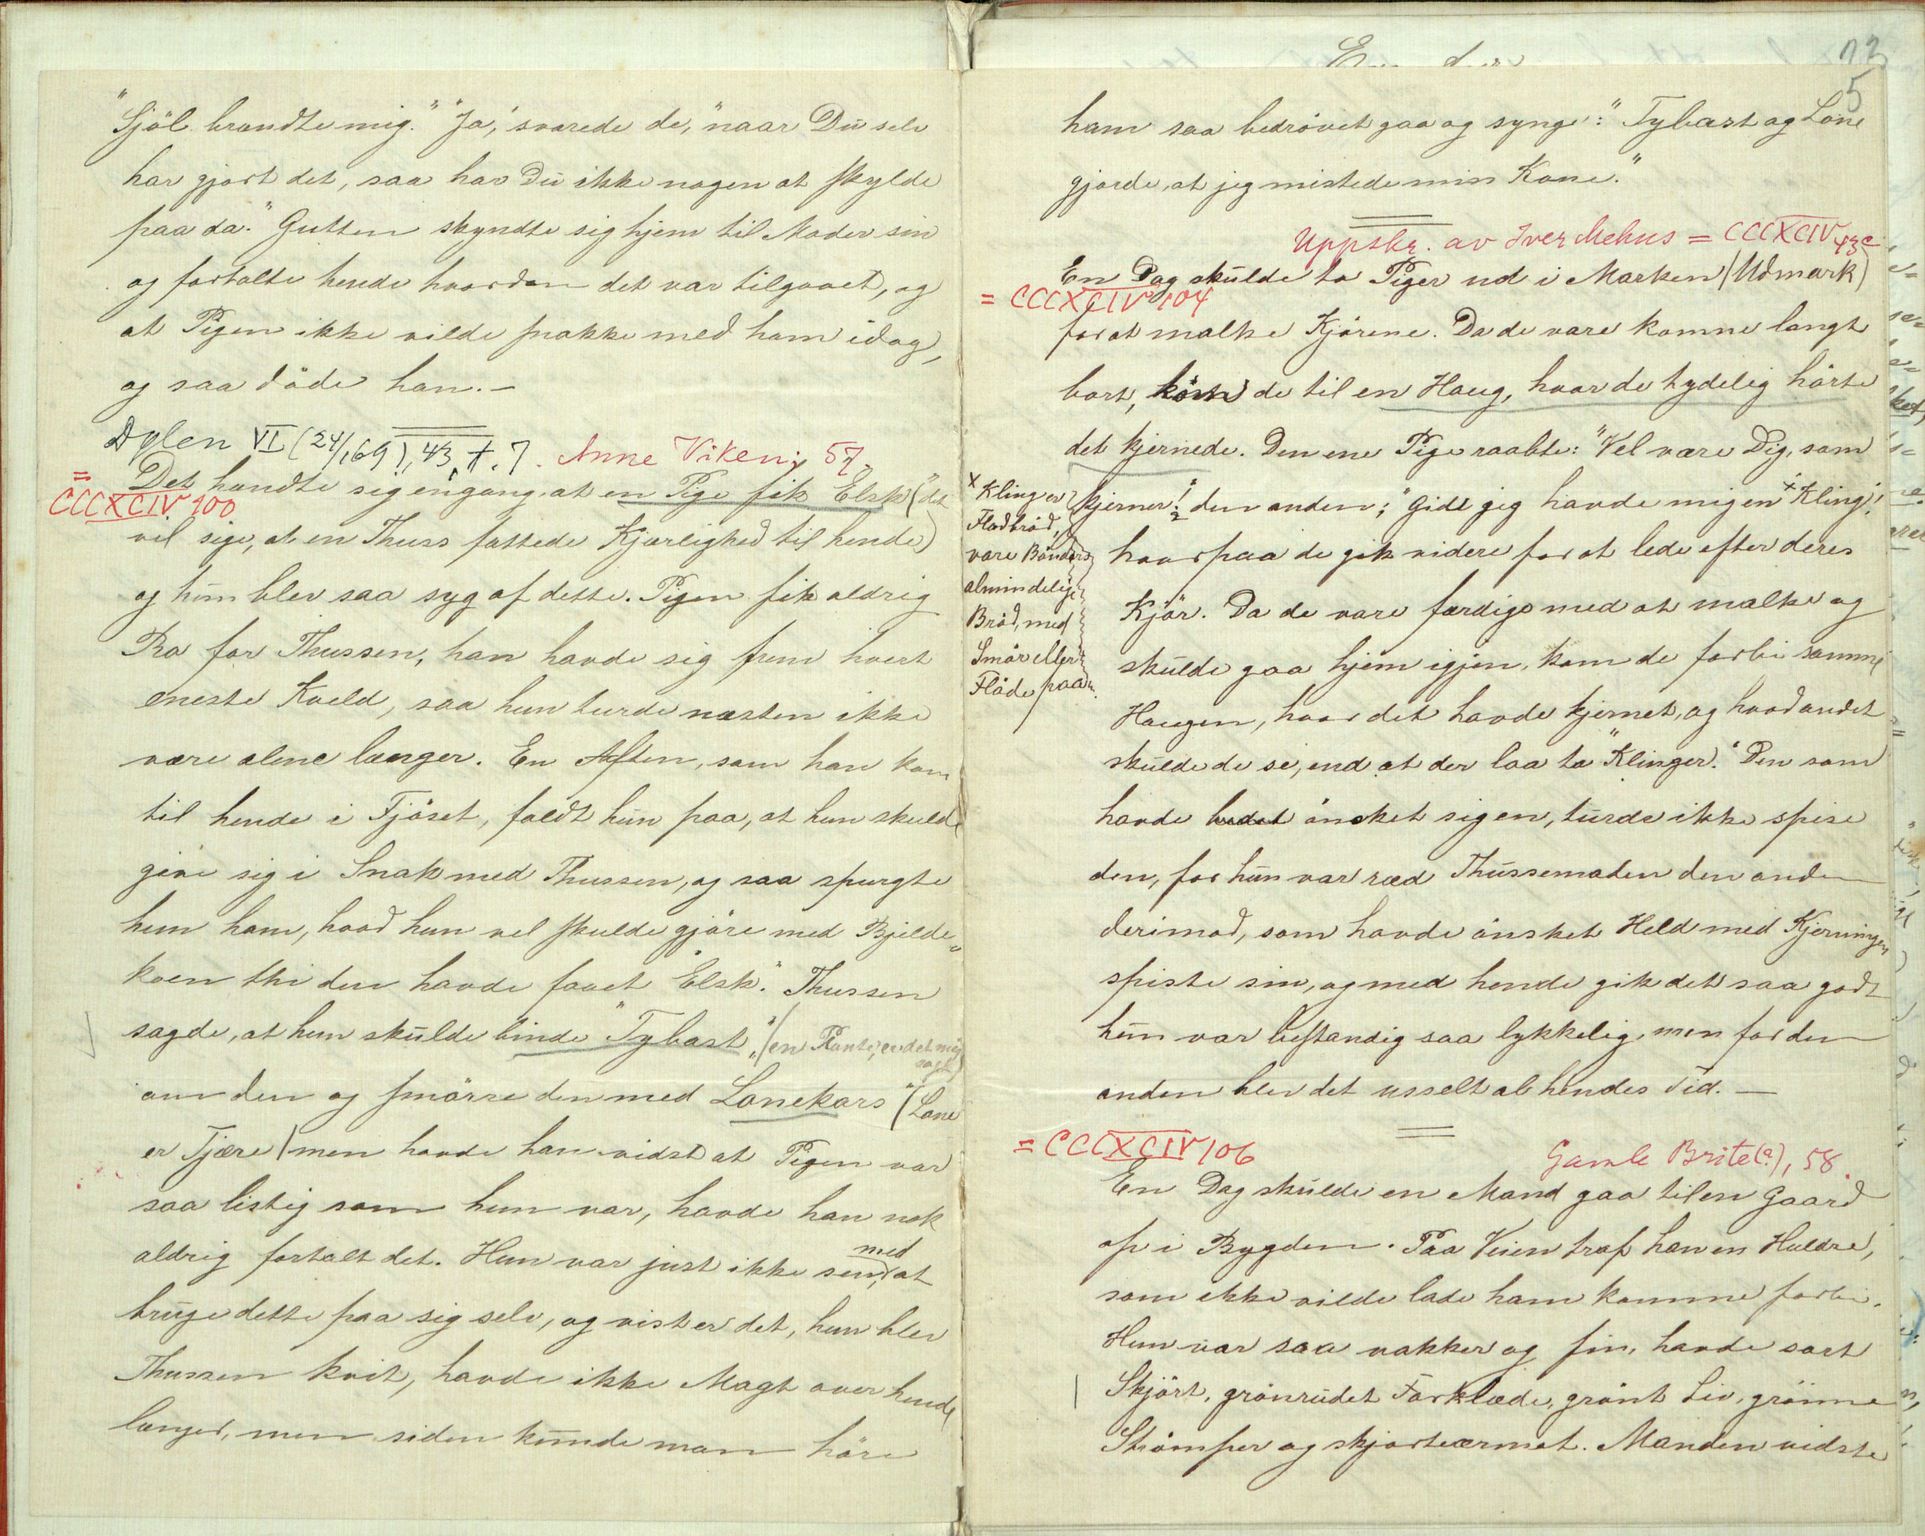 "Sjöl brændte mig." "Ja," svarede de, "naar Du selv
har gjort det, saa har Du ikke nogen at skylde
paa da." Gutten skyndte sig hjem til Moder sin
og fortalte hende hvordan det var tilgaaet, og
at Pigen ikke vilde snakke med ham idag,
og saa döde han.—
Dölen VI (24/, 69), 43, t. 7. Anne Viken, 57.
= CCCXCIV 100
Det hændte sig engang at en Pige fik Elsk ("det
vil sige, at en Thuss fattede Kjærlighed til hende)
og hun blev saa syg af dette. Pigen fik aldrig
Ro for Thussen, han havde sig frem hvert
eneste Kveld, saa hun turde næsten ikke
være alene længer. En Aften, som han kom
til hende i Fjöset, faldt hun paa, at hun skulde
give sig i Snak med Thussen, og saa spurgte
hun ham, hvad hun vel skulde gjöre med Bjelde-
koen thi den havde faaet "Elsk." Thussen
sagde, at hun skulde binde "Tybast", (en Plante, er det mig sagt)
om den og smörre den med Lonekors" (Lone
er Tjære) men havde han vidst at Pigen var
saa listig som hun var, havde han nok
aldrig fortalt det. Hun var just ikke sen, med at
bruge dette paa sig selv, og vist er det, hun blev
Thussen kvit, havde ikke Magt over hende
længer, men siden kunde man höre
5
ham saa bedrövet gaa og synge: "Tybast og Lone
gjorde, at jeg mistede min Kone."
Uppskr. av Iver Mehus = CCCXCIV 43c
= CCCXCIV 104
En Dag skulde to Piger ud i Marken (Udmark)
for at malke Kjörene. Da de vare komne langt
bort, kom de til en Haug, hvor de tydelig hörte
det kjernede. Den ene Pige raabte: "Vel være Dig, som
kjerner!" den anden; "Gidt jeg havde mig en x Kling",!
hvorpaa de gik videre for at lede efter deres
Kjör. Da de vare færdige med at malke og
skulde gaa hjem igjen, kom de forbi samme
Haugen, hvor det havde kjernet, og hvad andet
skulde de se, end at der laa to "Klinger." Den som
havde önsket sig en, turde ikke spise
den, for hun var ræd Thussemaden den anden
derimod, som havde önsket Held med Kjerningen
spiste sin, og med hende gik det saa godt
hun var bestandig saa lykkelig, men for den
anden blev det usselt al hendes Tid.—
x Kling er
Fladbröd,
vore Bönders
almindelige
Bröd, med
Smör eller
Flöde paa.
= CCCXCIV 106
Gamle Brite(?), 58.
En Dag skulde en Mand gaa til en Gaard
op i Bygden. Paa Veien traf han en Huldre,
som ikke vilde lade ham komme forbi.
Hun var saa vakker og fin, havde sort
Skjört, grönrudet Forklæde, grönt Liv, grönne
Strömper og skjorteærmet. Manden vidste